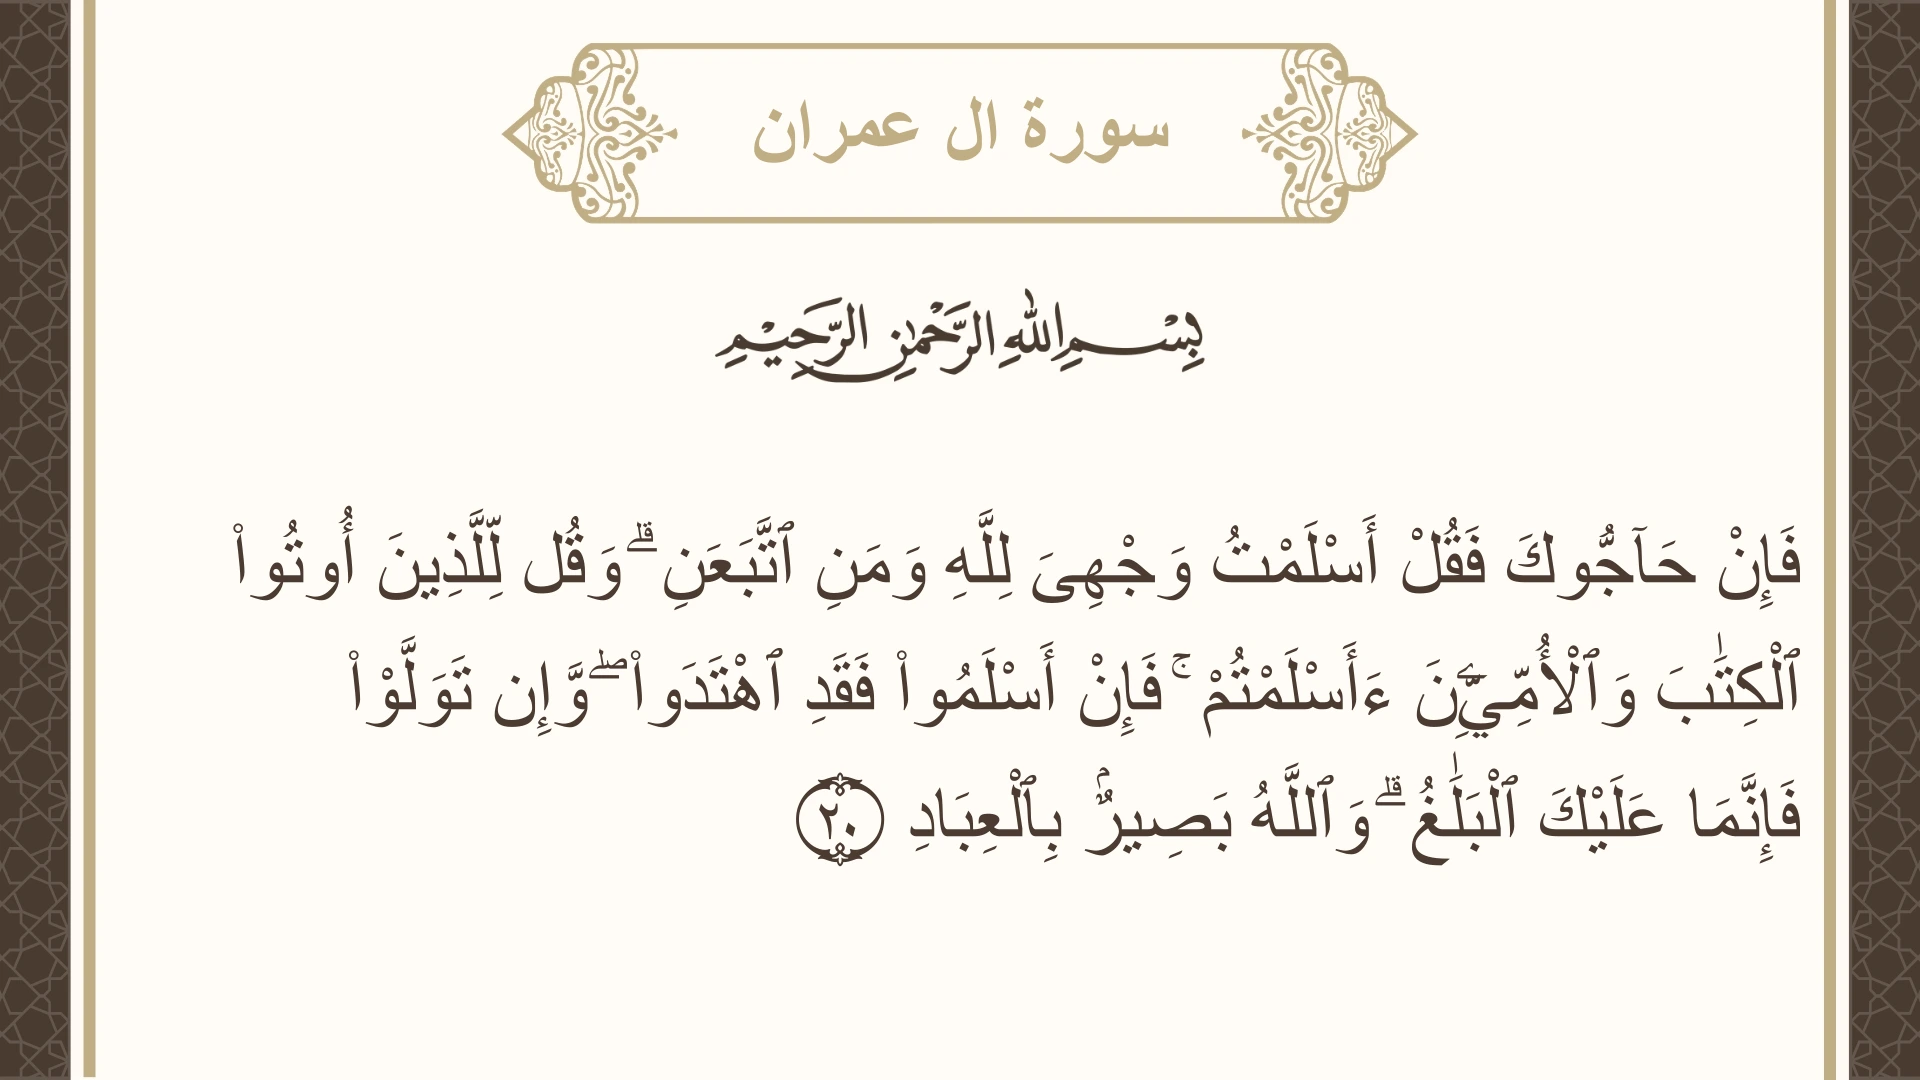 سورة ال عمران
بِسْمِ اللهِ الرَّحْمٰنِ الرَّحِيْمِ
فَإِنْ حَآجُّوكَ فَقُلْ أَسْلَمْتُ وَجْهِىَ لِلَّهِ وَمَنِ ٱتَّبَعَنِ ۗ وَقُل لِّلَّذِينَ أُوتُوا۟
ٱلْكِتَٰبَ وَٱلْأُمِّيِّۦنَ ءَأَسْلَمْتُمْ ۚ فَإِنْ أَسْلَمُوا۟ فَقَدِ ٱهْتَدَوا۟ ۖ وَّإِن تَوَلَّوْا۟
فَإِنَّمَا عَلَيْكَ ٱلْبَلَٰغُ ۗ وَٱللَّهُ بَصِيرٌۢ بِٱلْعِبَادِ ٢٠